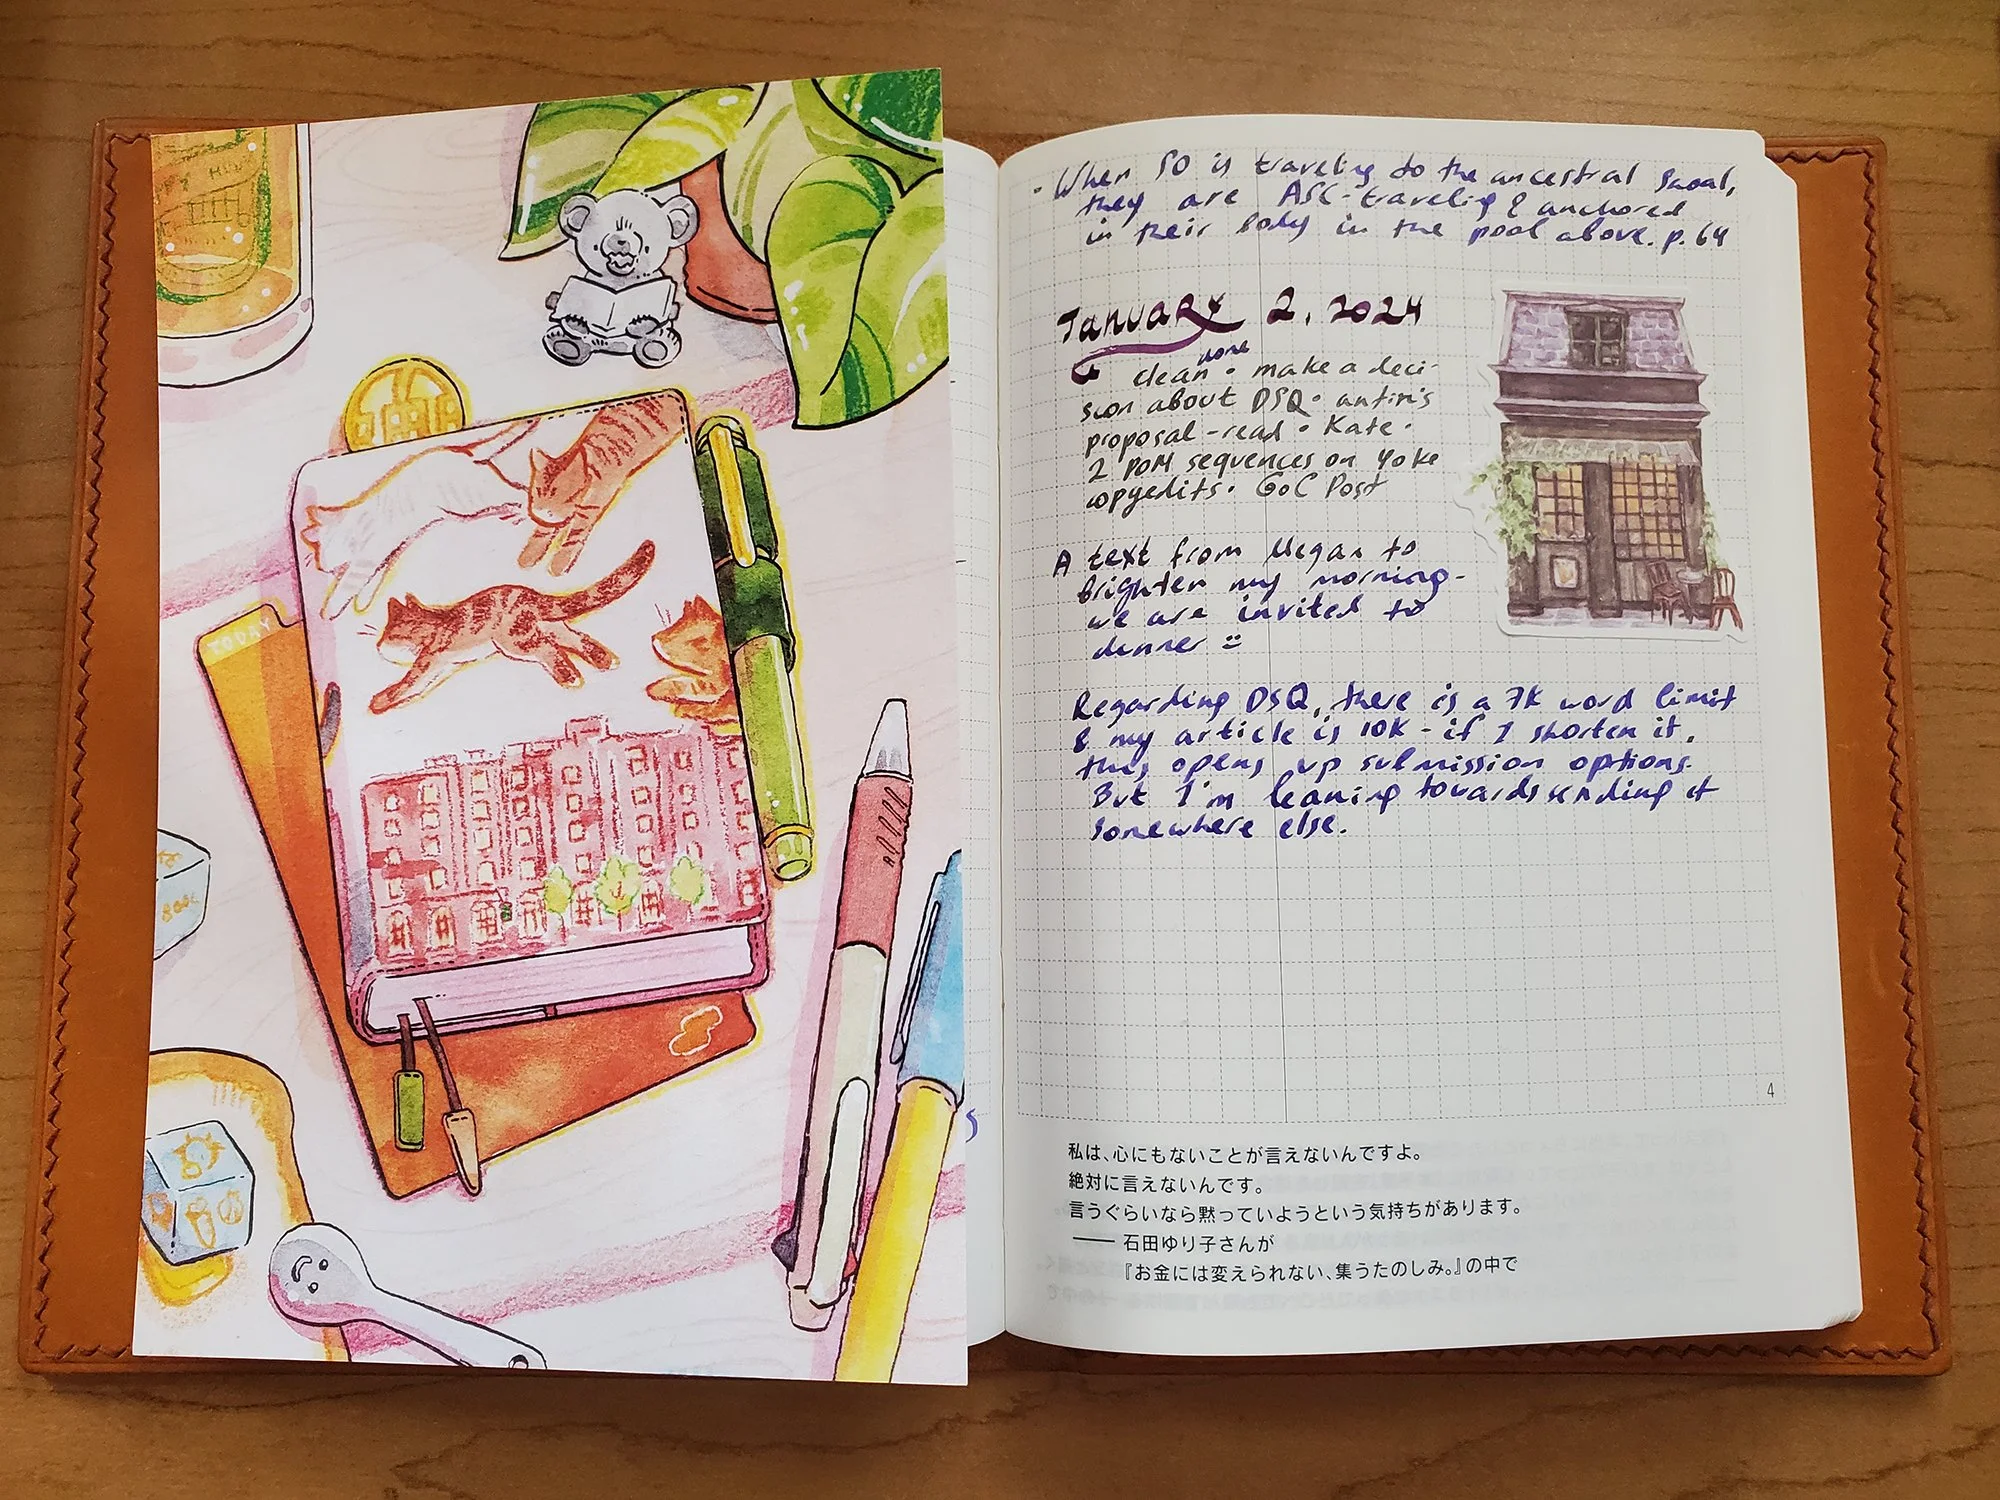 TODAY
- When SO is traveling to the ancestral shoal,
they are ASC-traveling & anchored
in their body in the pool above. p. 64
January 2, 2024
none
clean • make a deci-
sion about DSQ • antiri's
proposal - read • Kate •
2 POM sequences on Yoke
copyedits • GoC Post
A text from Megan to
brighten my morning -
we are invited to
dinner
Regarding DSQ, there is a 7K word limit
& my article is 10K - if I shorten it,
this opens up submission options.
But I'm leaning towards sending it
somewhere else.
4
私は、心にもないことが言えないんですよ。
絶対に言えないんです。
言うぐらいなら黙っていようという気持ちがあります。
—— 石田ゆり子さんが
『お金には変えられない、集うたのしみ。』の中で